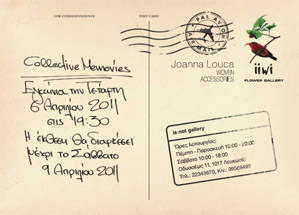 FOR CORRESPONDENCE
POST CARD
PAR AVION
AIR MAIL
Collective Memories
Εγκαίνια την Τετάρτη
6 Απριλίου 2011
στις 19:30
Η έκθεση θα διαρκέσει
μέχρι το Σάββατο
9 Απριλίου 2011
Joanna Louca
WOVEN
ACCESSORIES
iiwi
FLOWER GALLERY
is not gallery
Ώρες λειτουργίας:
Πέμπτη - Παρασκευή 10:00 - 20:00
Σάββατο 10:00 - 18:00
Οδυσσέως 11, 1017 Λευκωσία
Τηλ.: 22343670, Κιν.: